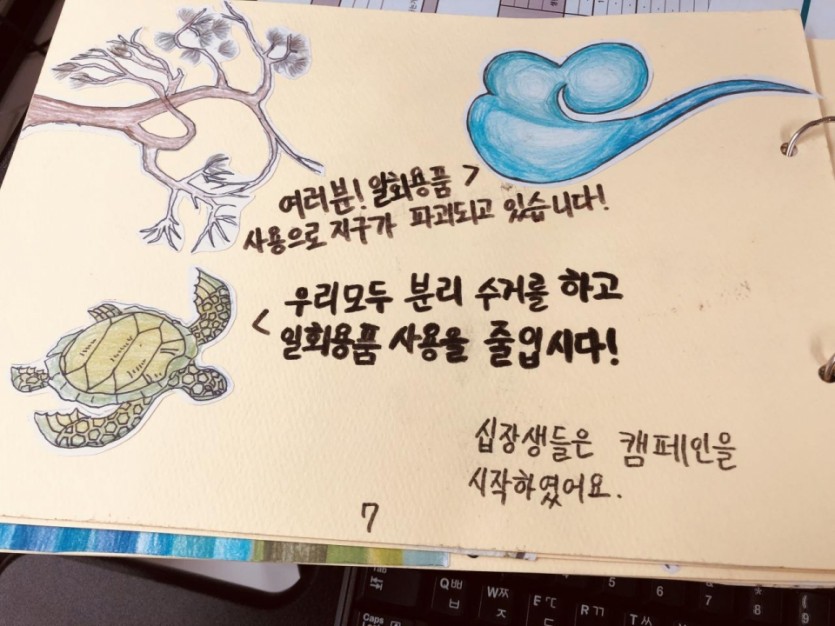 여러분! 일회용품 >
사용으로 지구가 파괴되고 있습니다!
우리모두 분리 수거를 하고
< 일회용품 사용을 줄입시다!
십장생들은 캠페인을
시작하였어요.
7
Tab
Q ㅃ ㅂ
W ㅉ ㅈ
E ㄸ ㄷ
R ㄲ
T ㅆ
5
6
7
8
9
Caps